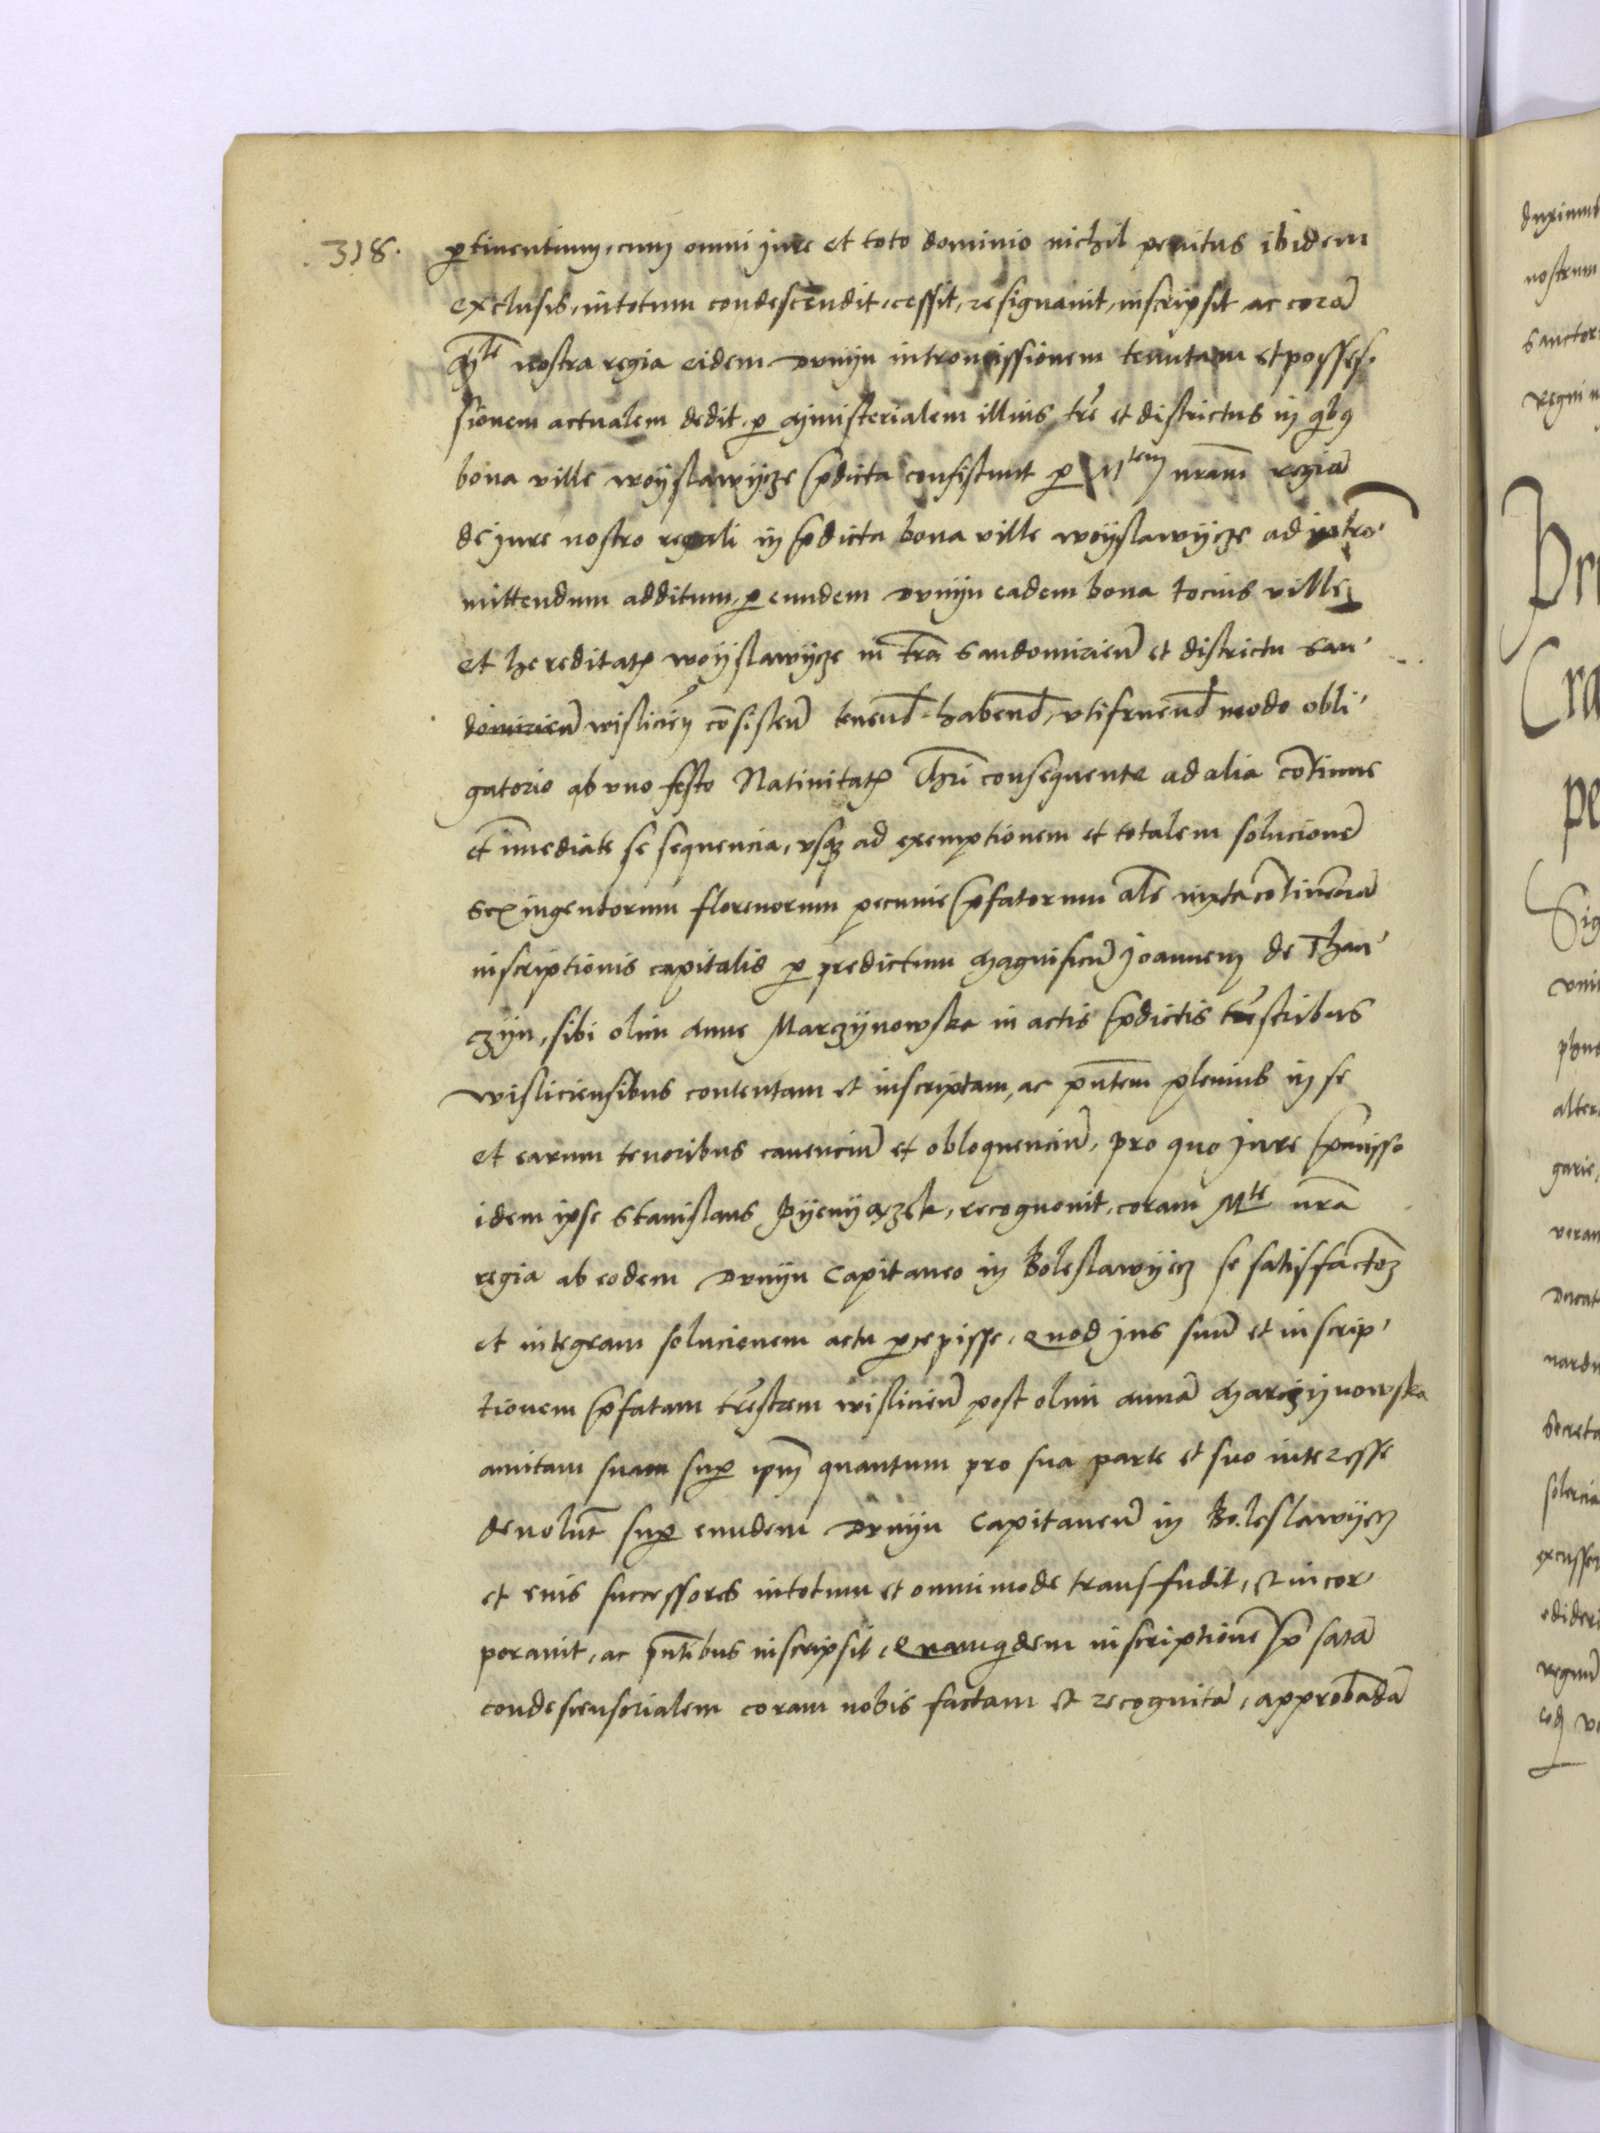 318.
ꝑtinentium, cum omni jure et toto dominio nichil penitus ibidem
exclusis, intotum condescendit, cessit, resignauit, inscripsit ac corā
Mte nostra regia eidem Drnijn intromissionem tenutam et posses-
sionem actualem dedit, ꝑ ministerialem illius tr̄e et districtus in qibꝫ
bona ville woijslawijcze p̄dicta consistunt ꝑ Mtem nr̄am regiā
de jure nostro regali in p̄dicta bona ville woijslawijcze ad intro-
mittendum additum, ꝑ eundem Drnijn eadem bona tocius ville
et hereditatꝭ woijslawijcze in tr̄a Sandomirien̄ et districtu San-
domirien̄ wislicien̄ cōsisten̄ tenend̄ habend̄, vtifruend̄ modo obli-
gatorio ab vno festo Natiuitatꝭ Chr̄i consequente ad alia cōtinue
et īmediate se sequencia, vsqꝫ ad exemptionem et totalem solucionē
sexingentorum florenorum pecunie p̄fatorum al̄s iuxta cōtinenciā
inscriptionis capitalis ꝑ predictum Magnificū Joannem de Than-
czijn, sibi olim Anne Marczijnowska in actis p̄dictis tr̄estribus
wisliciensibus contentam et inscriptam, ac p̄ntem plenius in se
et earum tenoribus cauenciū et obloquenciū, pro quo jure p̄misso
idem ipse Stanislaus Pijenijązek, recognouit, coram Mte nr̄a
regia ab eodem Drnijn Capitaneo in Boleslawijecz se satisfactꝫ
et integram solucionem actu ꝑcepisse, Quod jus suū et inscrip-
tionem p̄fatam tr̄estrem wislicien̄ post olim Annā Marczijnowska
amitam suam suꝑ ip̄m quantum pro sua parte et suo interesse
deuolut̄ suꝑ eundem Drnijn Capitaneū in Boleslawijecz
et eius successores intotum et omnimode transfudit, et incor-
porauit, ac p̄ntibus inscripsit, Quamqidem inscriptionē p̄fatā
condescensorialem coram nobis factam et recognitā, approbādā